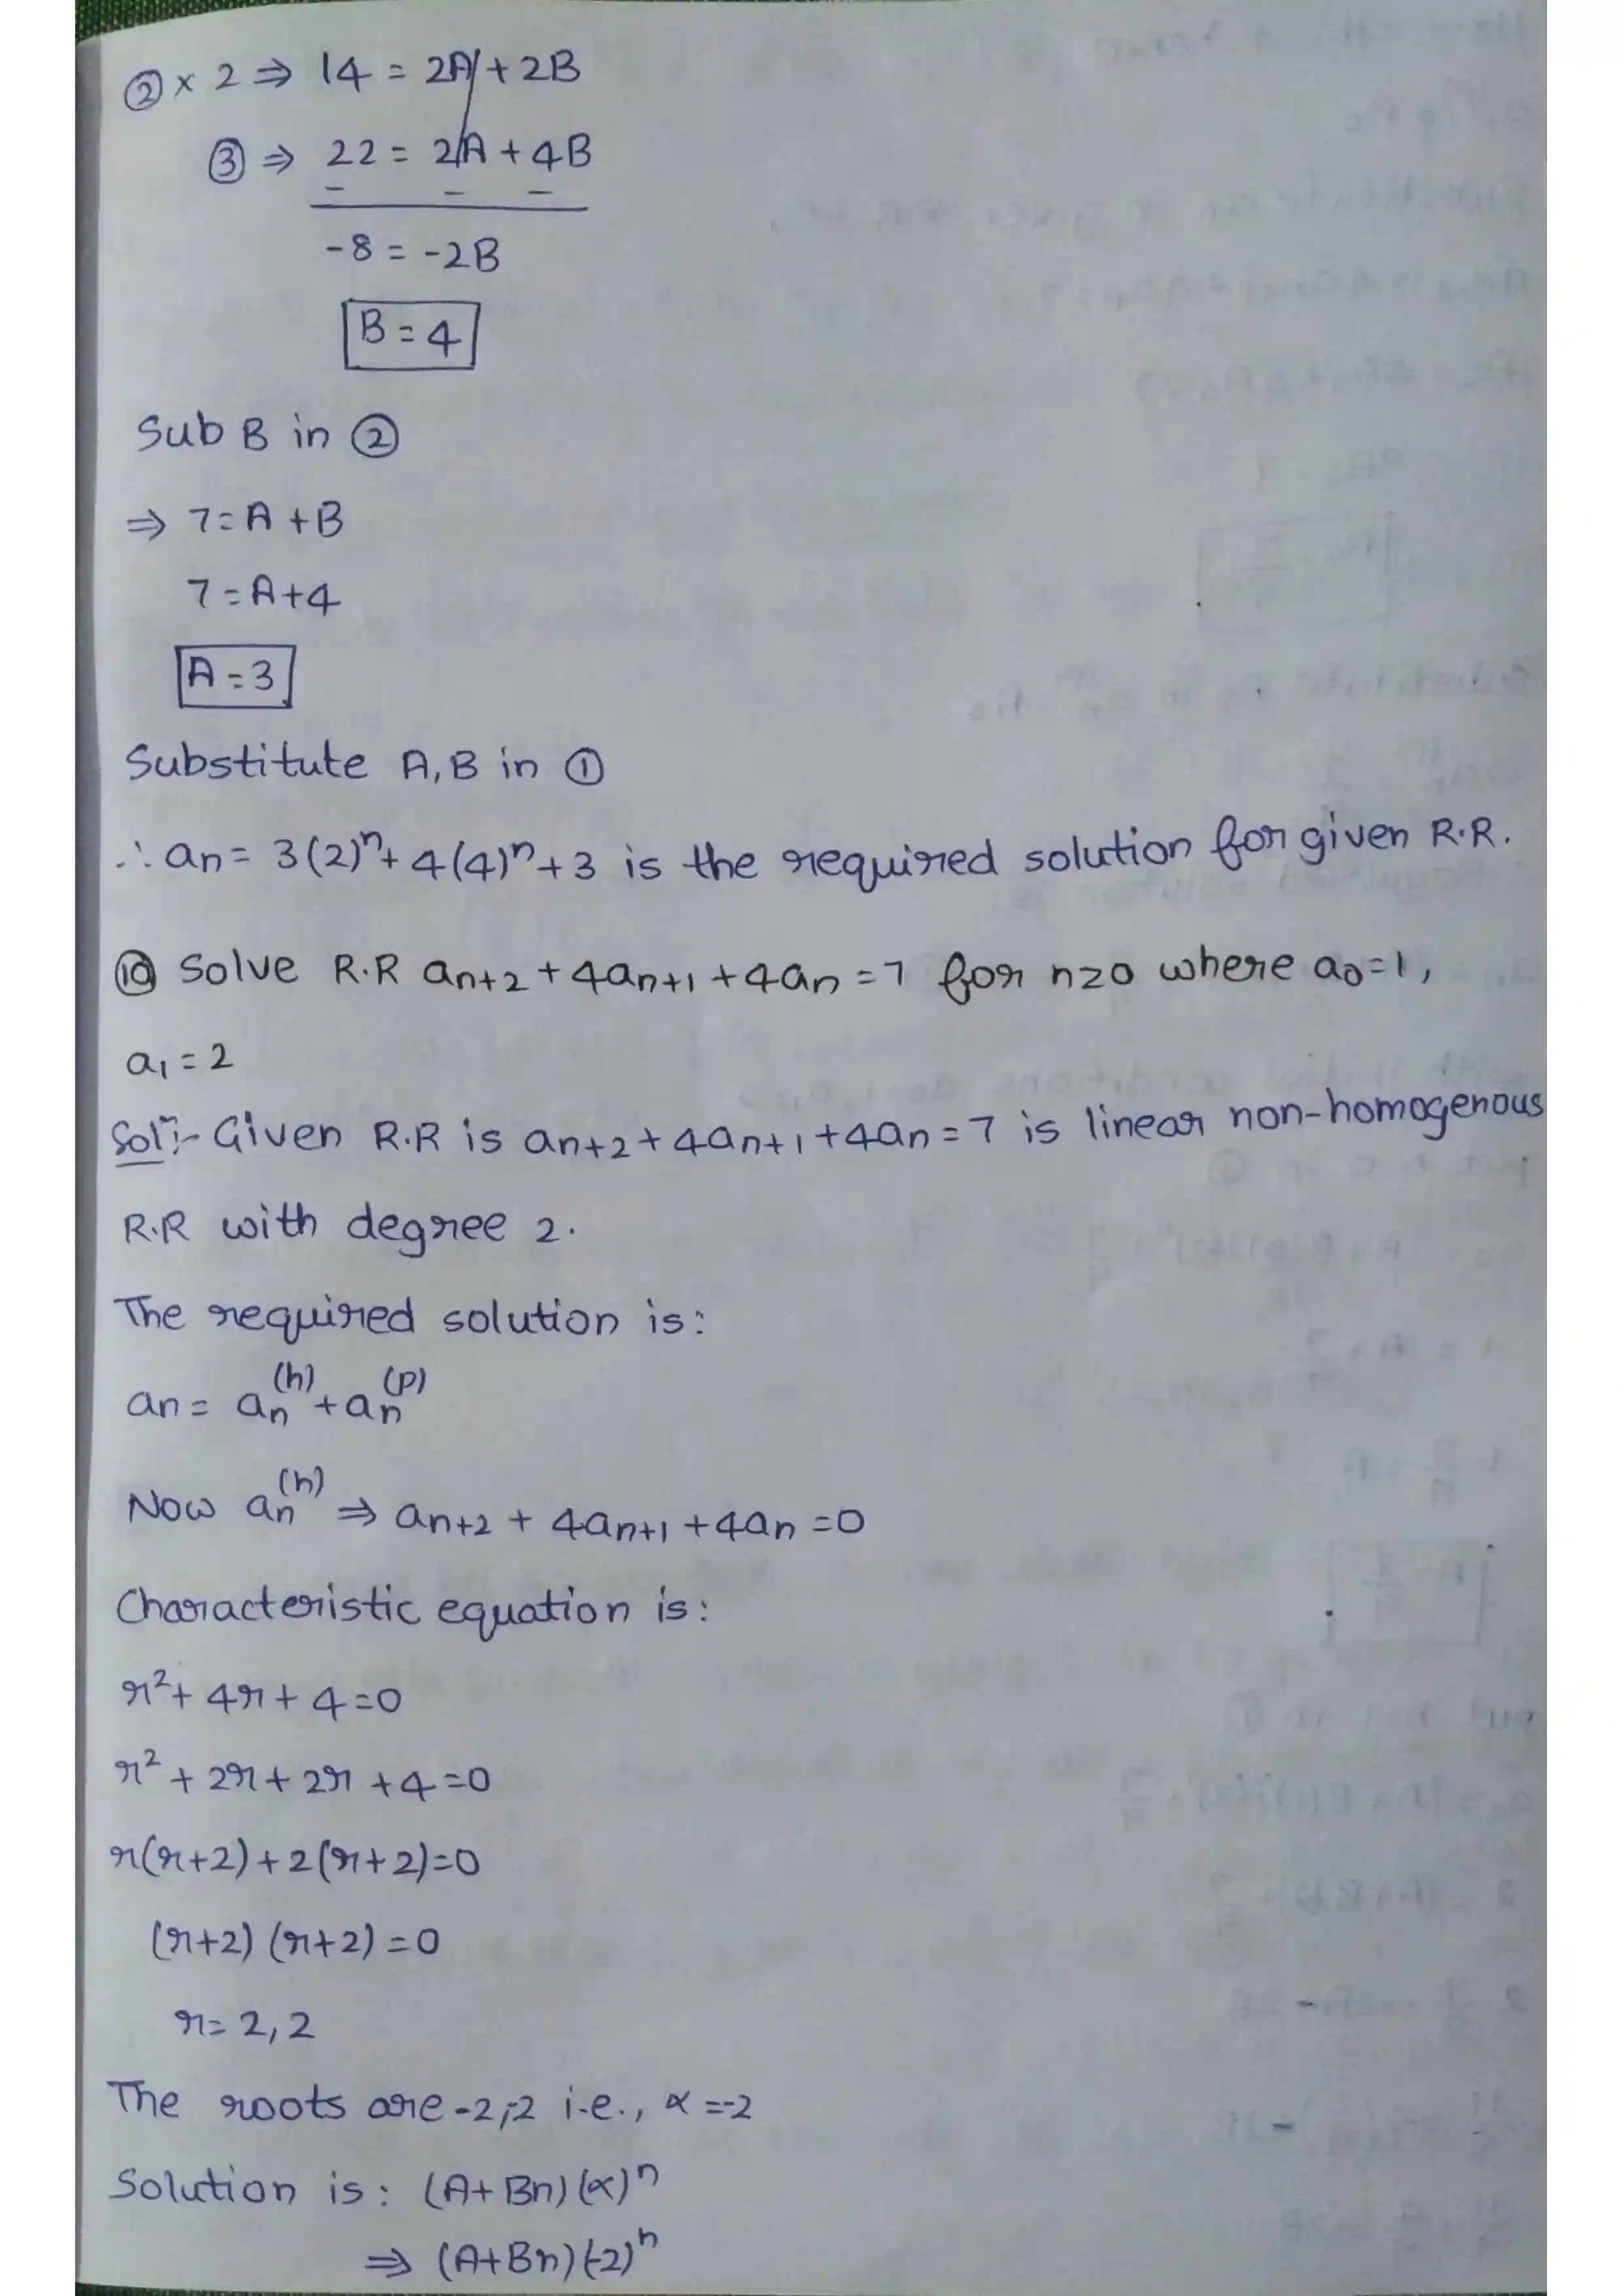 ② × 2 ⇒ 14 = 2A + 2B
③ ⇒ 22 = 2A + 4B
- - -
-8 = -2B
B = 4
Sub B in ②
⇒ 7 = A + B
7 = A + 4
A = 3
Substitute A, B in ①
∴ an = 3(2)ⁿ + 4(4)ⁿ + 3 is the required solution for given R.R.
⑩ Solve R.R an+2 + 4an+1 + 4an = 7 for n≥0 where a0 = 1,
a1 = 2
Solⁿ:- Given R.R is an+2 + 4an+1 + 4an = 7 is linear non-homogenous
R.R with degree 2.
The required solution is:
an = an⁽ʰ⁾ + an⁽ᵖ⁾
Now an⁽ʰ⁾ ⇒ an+2 + 4an+1 + 4an = 0
Characteristic equation is:
r² + 4r + 4 = 0
r² + 2r + 2r + 4 = 0
r(r+2) + 2(r+2) = 0
(r+2) (r+2) = 0
r = 2, 2
The roots are -2,-2 i.e., α = -2
Solution is: (A + Bn) (α)ⁿ
⇒ (A + Bn) (-2)ⁿ